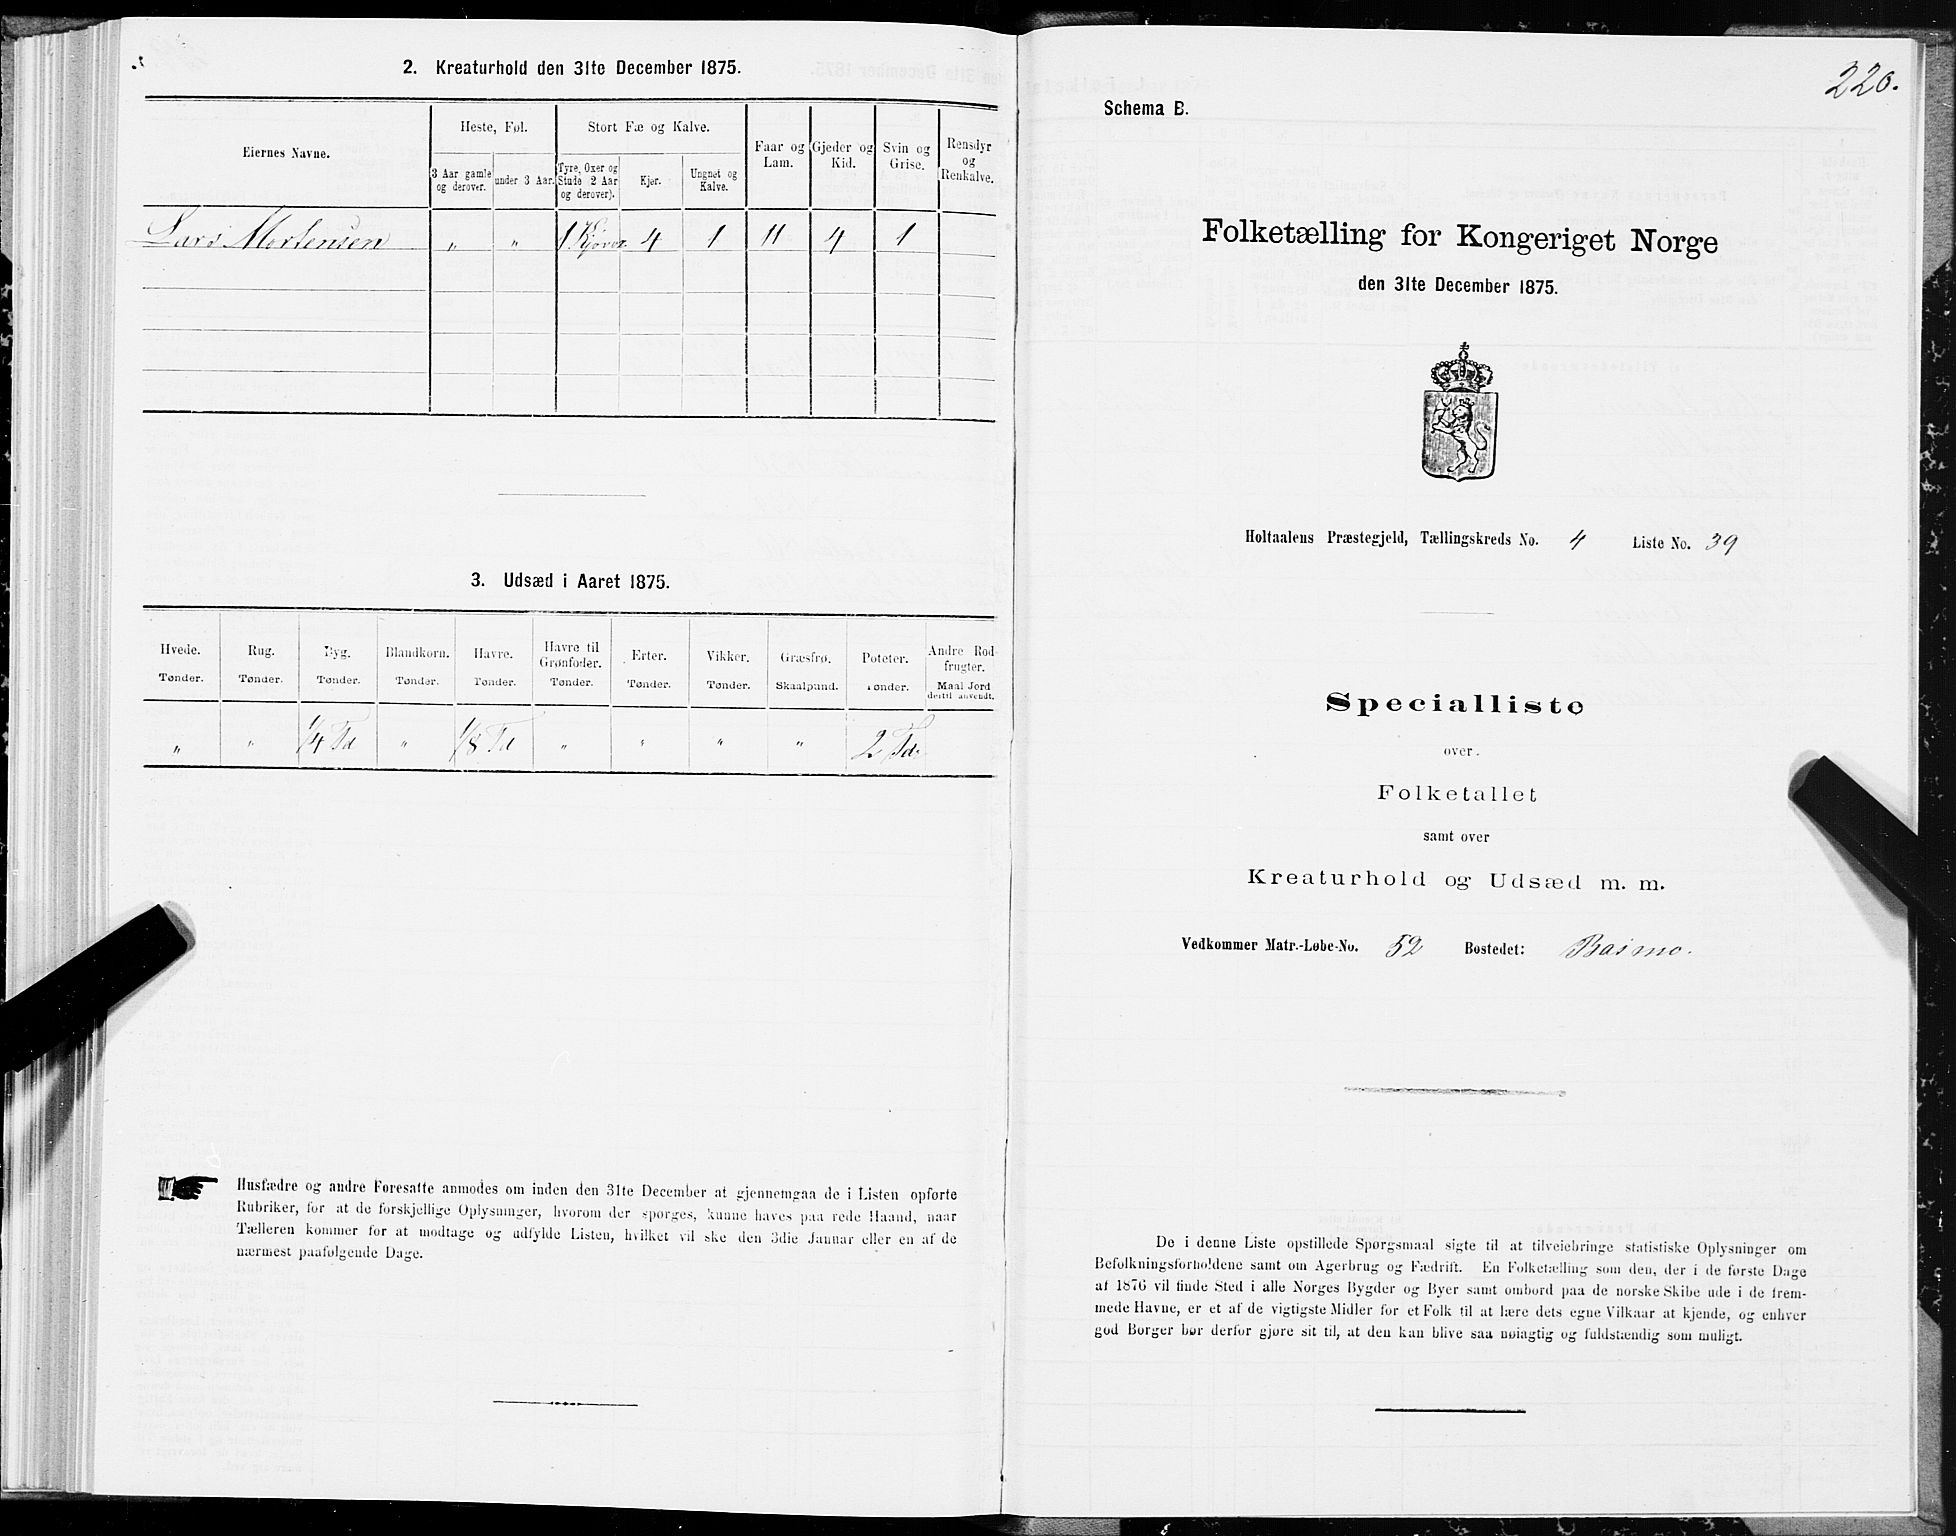 2. Kreaturhold den 31te December 1875.
Eiernes Navne.
Heste, Føl.
Stort Fæ og Kalve.
Faar og Lam.
Gjeder og Kid.
Svin og Grise.
Rensdyr og Renkalve.
3 Aar gamle og derover.
under 3 Aar.
Tyre, Oxer og Stude 2 Aar og derover).
Kjør.
Ungnet og Kalve.
Lars Mortensen " " 1 4 1 11 4 1
3. Udsæd i Aaret 1875.
Hvede. Rug. Byg. Blandkorn. Havre. Havre til Grønfoder. Erter. Vikker. Græsfrø. Poteter. Andre Rodfrugter.
Tønder. Tønder. Tønder. Tønder. Tønder. Tønder. Tønder. Tønder. Skaalpund. Tønder. Maal Jord dertil anvendt.
" " 1/4 Td " 1/8 Td " " " " 2 Td.
Husfædre og andre Foresatte anmodes om inden den 31te December at gjennemgaa de i Listen opførte
Rubriker, for at de forskjellige Oplysninger, hvorom der spørges, kunne haves paa rede Haand, naar
Tælleren kommer for at modtage og udfylde Listen, hvilket vil ske den 3die Januar eller en af de
nærmest paafølgende Dage.
220.
Schema B.
Folketælling for Kongeriget Norge
den 31te December 1875.
Holtaalens Præstegjeld, Tællingskreds No. 4 Liste No. 39
Specialliste
over
Folketallet
samt over
Kreaturhold og Udsæd m. m.
Vedkommer Matr.-Løbe-No. 52 Bostedet: Basmo.
De i denne Liste opstillede Spørgsmaal sigte til at tilveiebringe statistiske Oplysninger om
Befolkningsforholdene samt om Agerbrug og Fædrift. En Folketælling som den, der i de første Dage
af 1876 vil finde Sted i alle Norges Bygder og Byer samt ombord paa de norske Skibe ude i de frem-
mede Havne, er et af de vigtigste Midler for et Folk til at lære dets egne Vilkaar at kjende, og enhver
god Borger bør derfor gjøre sit til, at den kan blive saa nøiagtig og fuldstændig som muligt.